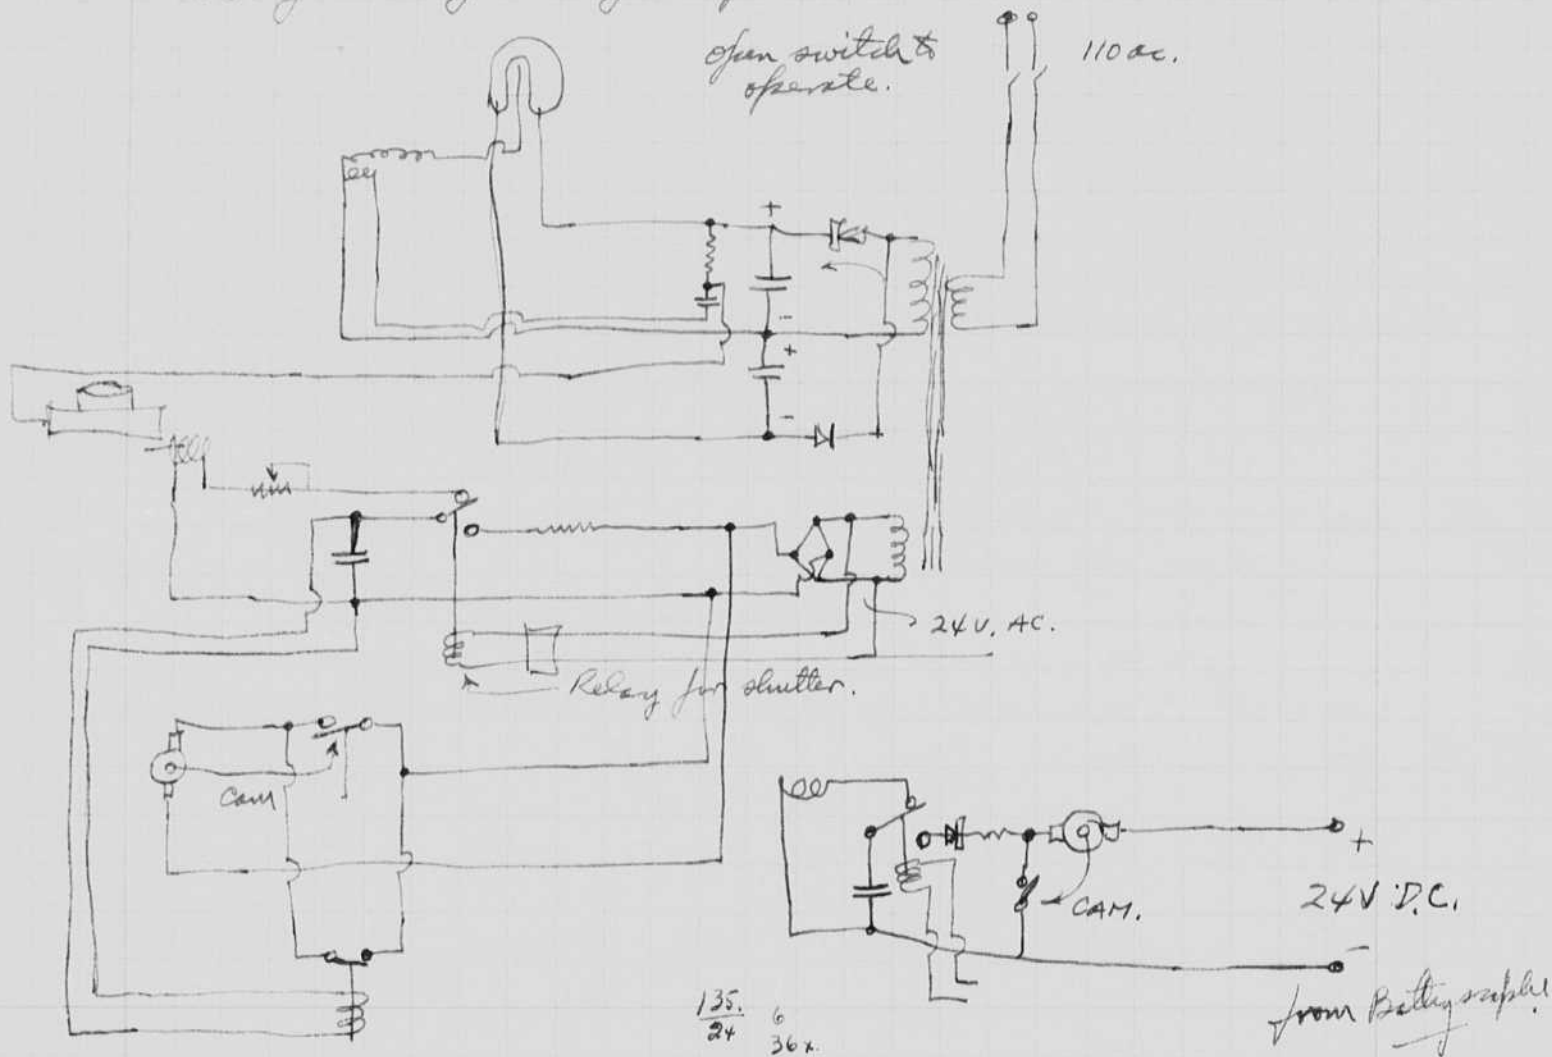 open switch to
operate.
110 ac.
+
-
+
-
24V. AC.
Relay for shutter.
Cam
CAM.
+
24V D.C.
-
from Battery
135.
24
6
36x.